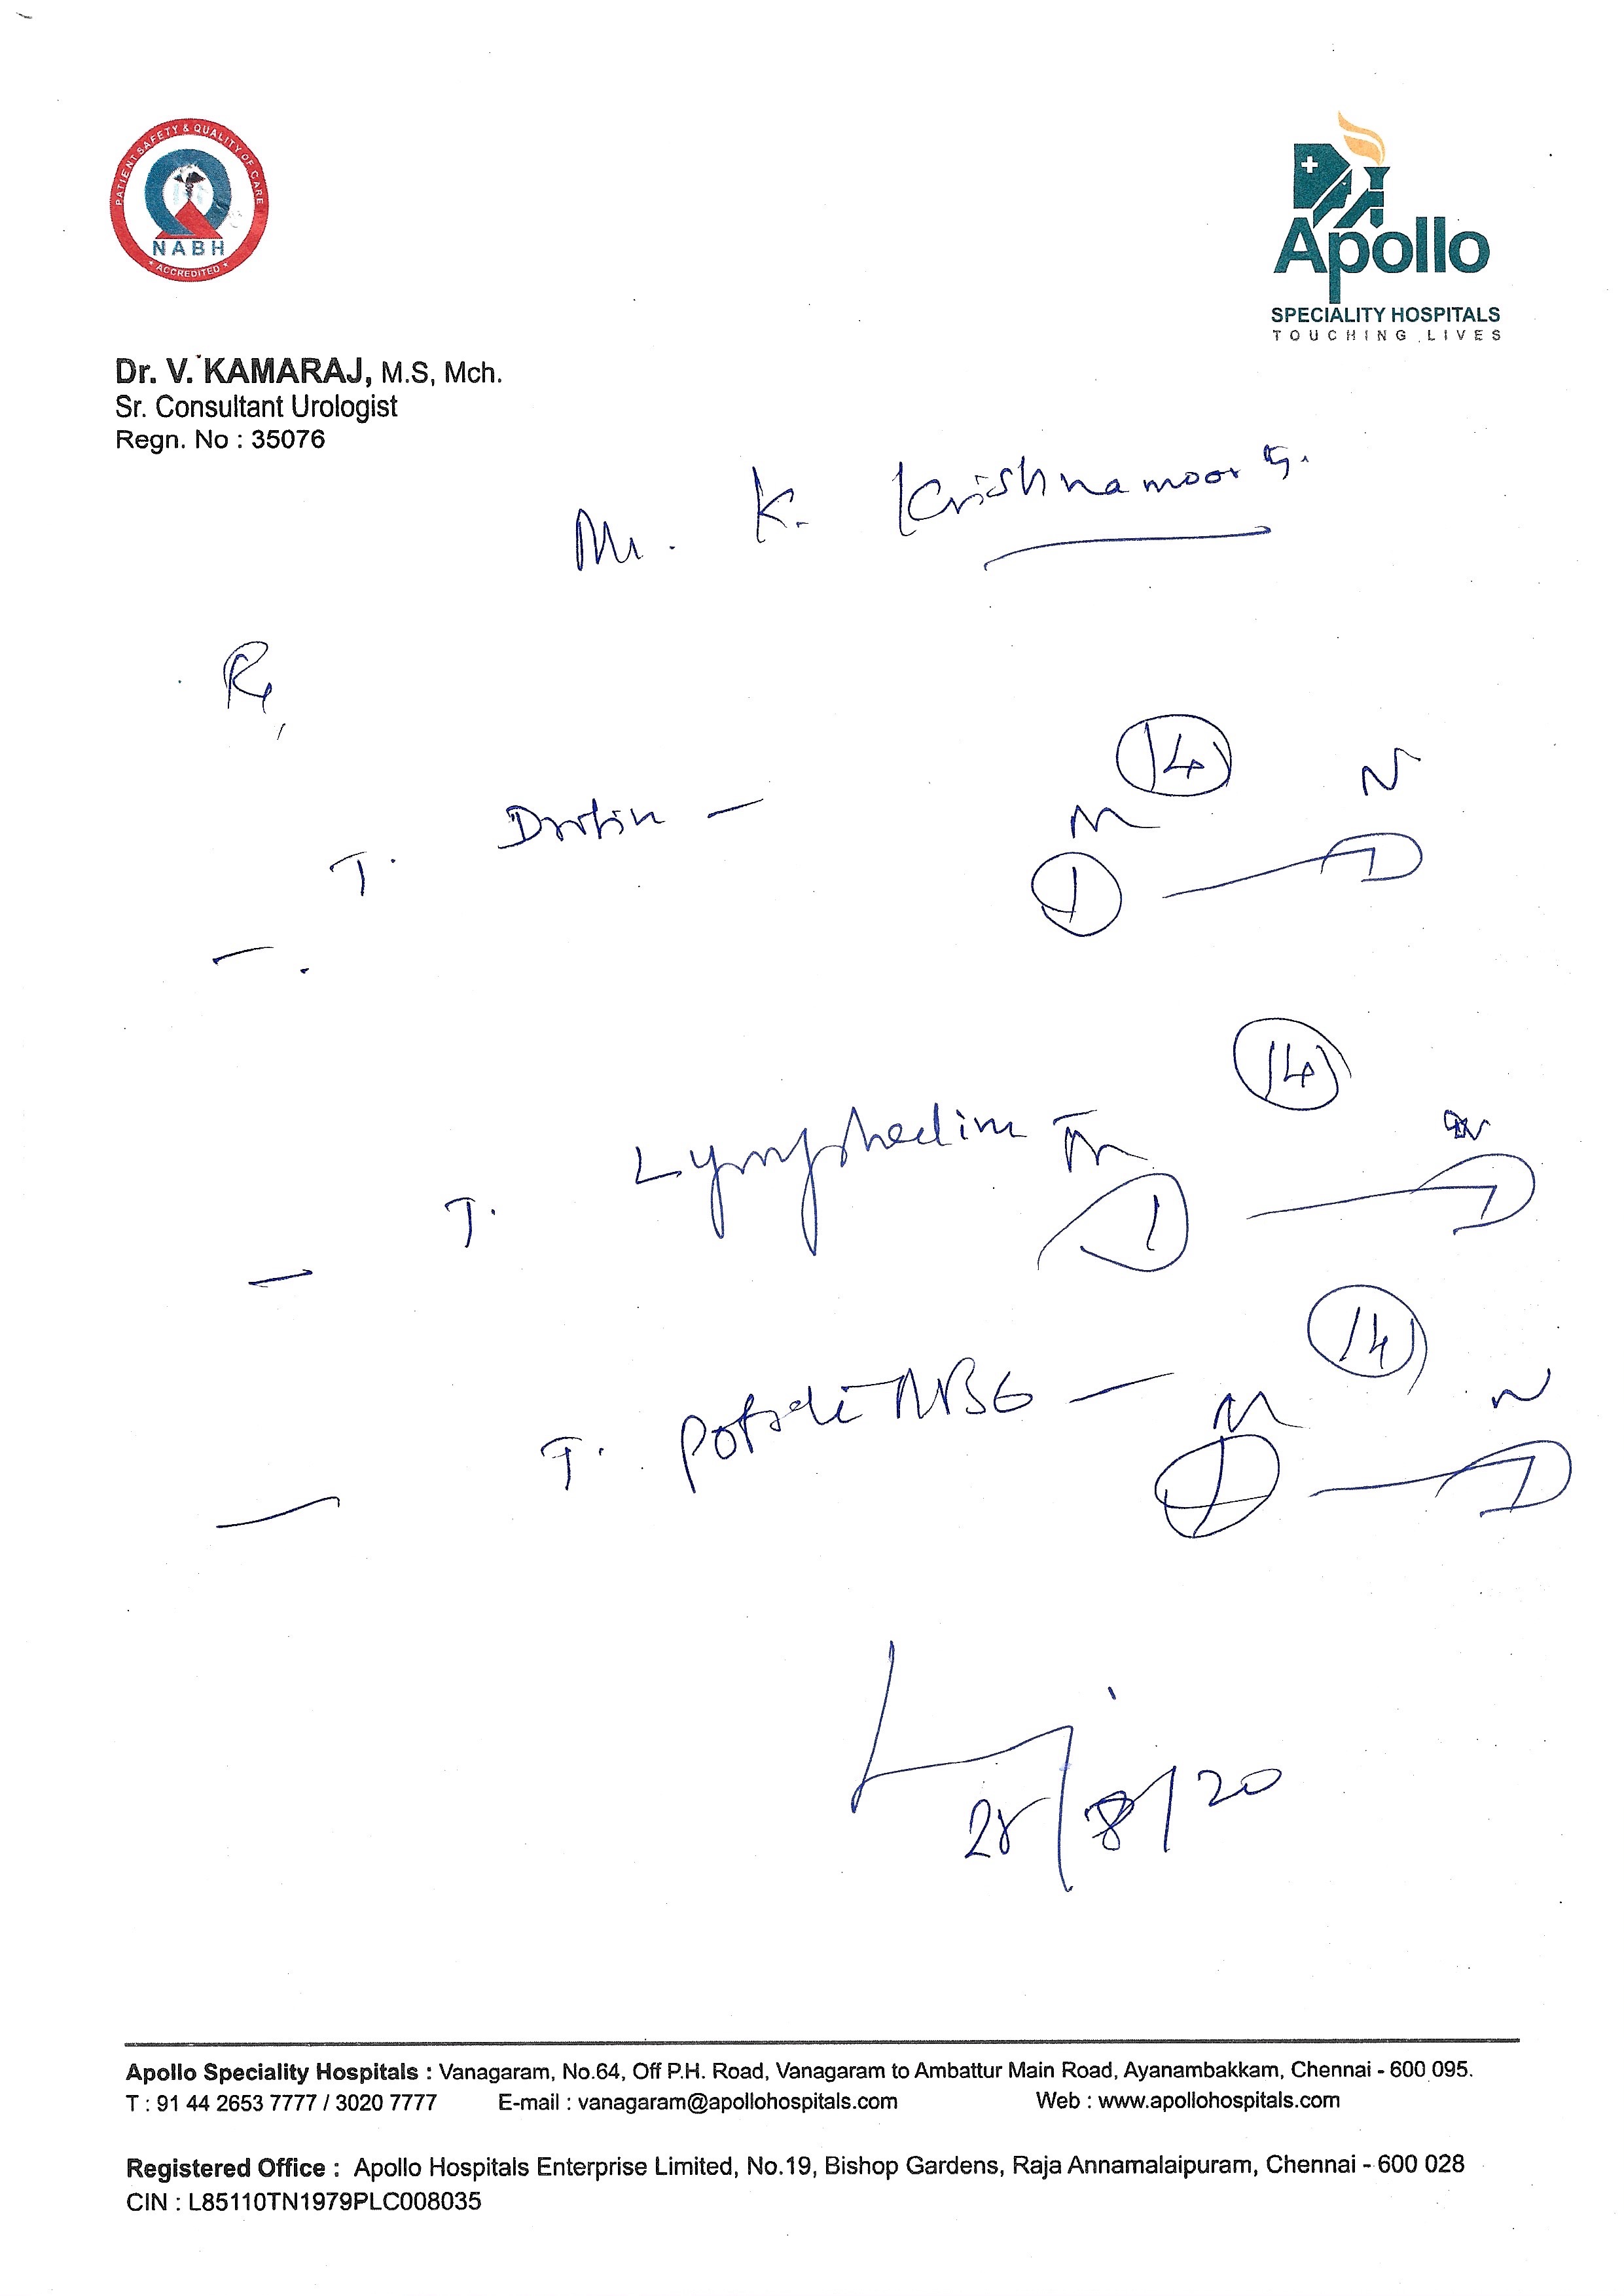 PATIENT SAFETY & QUALITY OF CARE
NABH
* ACCREDITED *
Apollo
SPECIALITY HOSPITALS
TOUCHING LIVES
Dr. V. KAMARAJ, M.S, Mch.
Sr. Consultant Urologist
Regn. No : 35076
Mr. K. Krishnamoorty.
Rx,
14
M N
T. Drotin — 1 — 1
14
M N
T. Lymphedim — 1 — 1
14
M N
T. MB6 — 1 — 1
28/8/20
Apollo Speciality Hospitals : Vanagaram, No.64, Off P.H. Road, Vanagaram to Ambattur Main Road, Ayanambakkam, Chennai - 600 095.
T : 91 44 2653 7777 / 3020 7777 E-mail : vanagaram@apollohospitals.com Web : www.apollohospitals.com
Registered Office : Apollo Hospitals Enterprise Limited, No.19, Bishop Gardens, Raja Annamalaipuram, Chennai - 600 028
CIN : L85110TN1979PLC008035